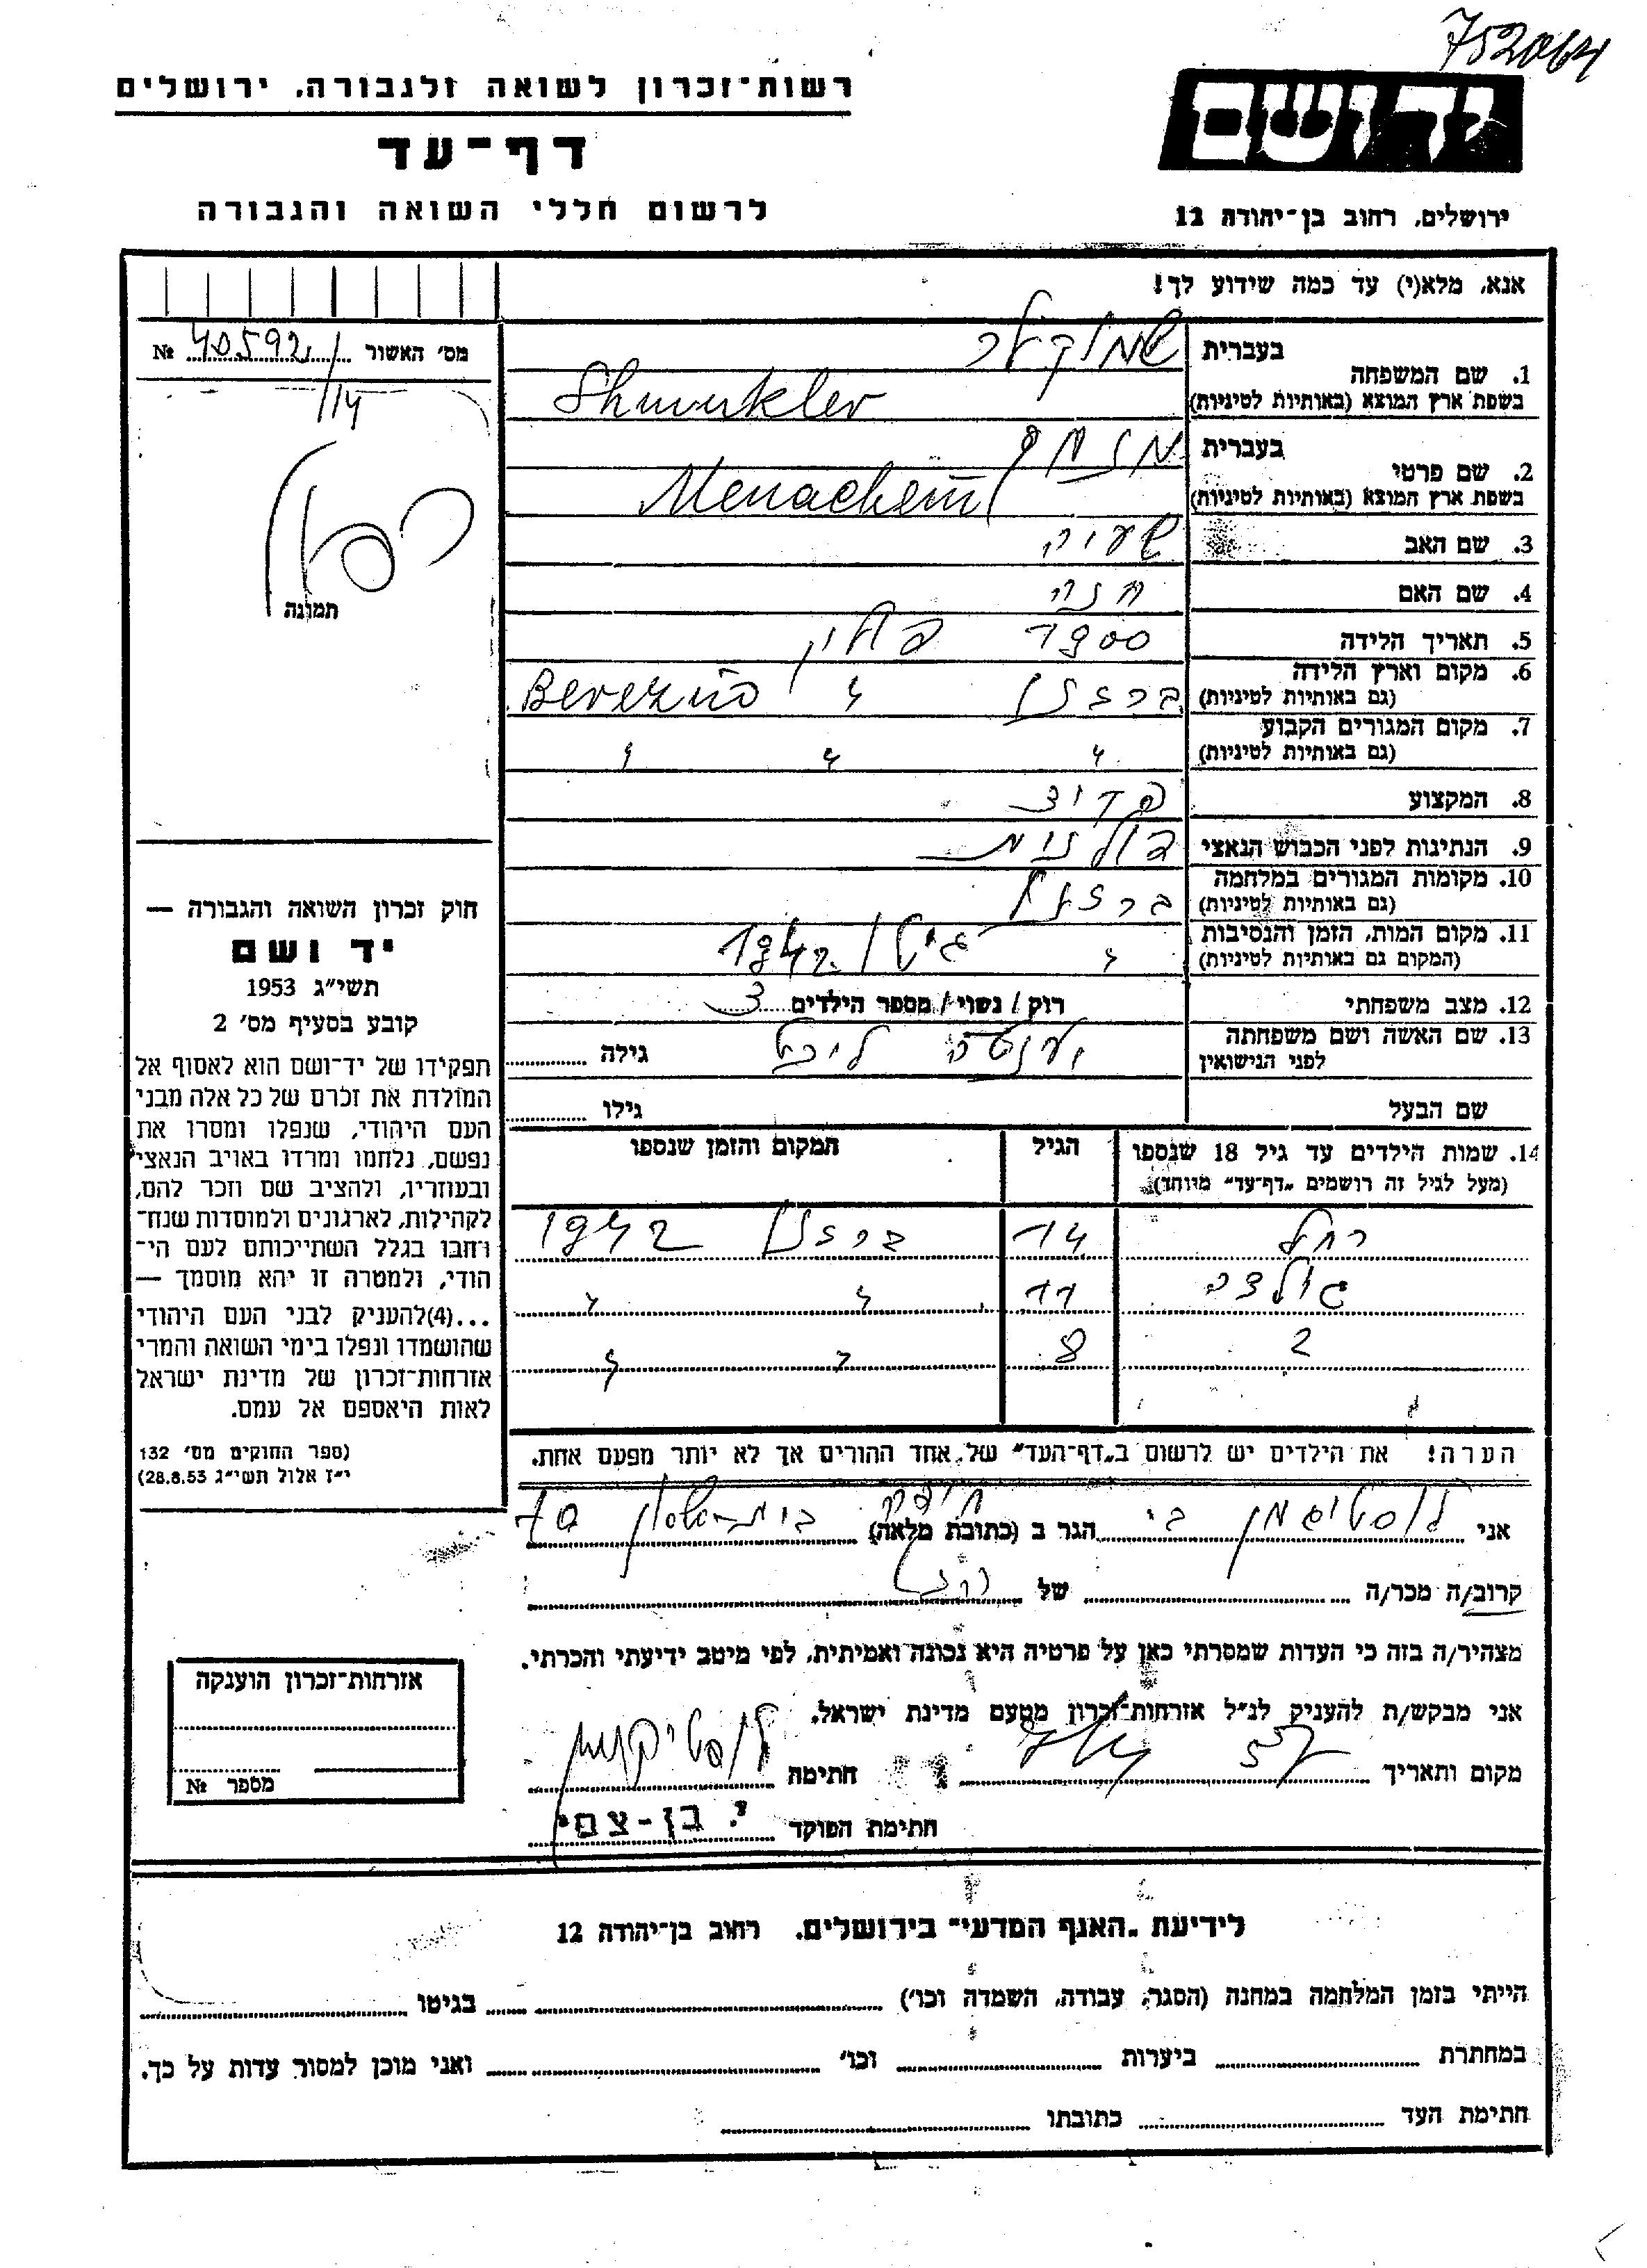 752064
רשות־זכרון לשואה ולגבורה, ירושלים
דף־עד
לרשום חללי השואה והגבורה
יד ושם
ירושלים, רחוב בן־יהודה 12
אנא, מלא(י) עד כמה שידוע לך!
מס' האשור 40592 №
1. שם המשפחה
בעברית שמוקלר
בשפת ארץ המוצא (באותיות לטיניות) Shmukler
2. שם פרטי
בעברית מנחם
בשפת ארץ המוצא (באותיות לטיניות) Menachem
תמונה
3. שם האב שעיה
4. שם האם חנה
5. תאריך הלידה 1900
6. מקום וארץ הלידה
(גם באותיות לטיניות) פולין
7. מקום המגורים הקבוע
(גם באותיות לטיניות) " " "
8. המקצוע
9. הנתינות לפני הכבוש הנאצי פולנית
10. מקומות המגורים במלחמה
(גם באותיות לטיניות)
11. מקום המות, הזמן והנסיבות
(המקום גם באותיות לטיניות) " גיטו 1942
12. מצב משפחתי רוק / נשוי / מספר הילדים 3
13. שם האשה ושם משפחתה
לפני הנישואין גילה
שם הבעל גילו
14. שמות הילדים עד גיל 18 שנספו הגיל המקום והזמן שנספו
(מעל לגיל זה רושמים „דף־עד” מיוחד)
רחל 14 1942
גולדה 11 " "
2 8 " "
הערה! את הילדים יש לרשום ב„דף־העד” של אחד ההורים אך לא יותר מפעם אחת.
חוק זכרון השואה והגבורה —
יד ושם
תשי״ג 1953
קובע בסעיף מס' 2
תפקידו של יד־ושם הוא לאסוף אל
המולדת את זכרם של כל אלה מבני
העם היהודי, שנפלו ומסרו את
נפשם, נלחמו ומרדו באויב הנאצי
ובעוזריו, ולהציב שם וזכר להם,
לקהילות, לארגונים ולמוסדות שנח־
רבו בגלל השתייכותם לעם הי־
הודי, ולמטרה זו יהא מוסמך —
...(4)להעניק לבני העם היהודי
שהושמדו ונפלו בימי השואה והמרי
אזרחות־זכרון של מדינת ישראל
לאות היאספם אל עמם.
(ספר החוקים מס' 132
י״ז אלול תשי״ג 28.8.53)
אני לוסטיגמן הגר ב (כתובת מלאה) חיפה
קרוב/ה מכר/ה של
מצהיר/ה בזה כי העדות שמסרתי כאן על פרטיה היא נכונה ואמיתית, לפי מיטב ידיעתי והכרתי.
אני מבקש/ת להעניק לנ״ל אזרחות־זכרון מטעם מדינת ישראל.
מקום ותאריך חתימה
חתימת הפוקד י. בן-צבי
אזרחות־זכרון הוענקה
מספר №
לידיעת „האגף המדעי” בירושלים, רחוב בן־יהודה 12
הייתי בזמן המלחמה במחנה (הסגר, עבודה, השמדה וכו') בגיטו
במחתרת ביערות וכו' ואני מוכן למסור עדות על כך.
חתימת העד כתובתו